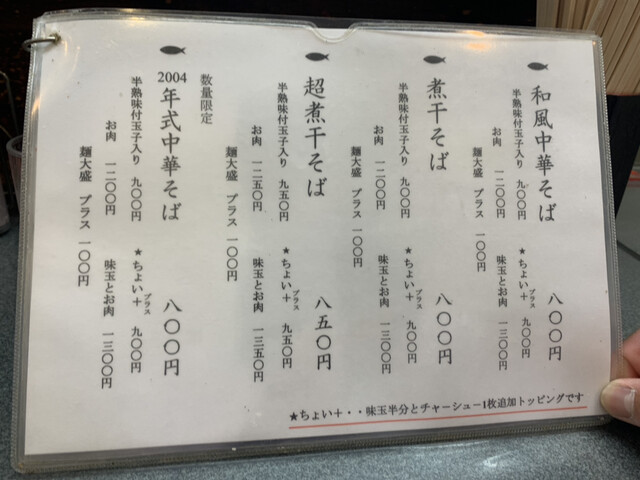 和風中華そば 八〇〇円
半熟味付玉子入り 九〇〇円 ★ちょい＋プラス 九〇〇円
お肉 一二〇〇円 味玉とお肉 一三〇〇円
麺大盛 プラス 一〇〇円
煮干そば 八〇〇円
半熟味付玉子入り 九〇〇円 ★ちょい＋プラス 九〇〇円
お肉 一二〇〇円 味玉とお肉 一三〇〇円
麺大盛 プラス 一〇〇円
超煮干そば 八五〇円
半熟味付玉子入り 九五〇円 ★ちょい＋プラス 九五〇円
お肉 一二五〇円 味玉とお肉 一三五〇円
麺大盛 プラス 一〇〇円
数量限定
2004年式中華そば 八〇〇円
半熟味付玉子入り 九〇〇円 ★ちょい＋プラス 九〇〇円
お肉 一二〇〇円 味玉とお肉 一三〇〇円
麺大盛 プラス 一〇〇円
★ちょい＋・・味玉半分とチャーシュー1枚追加トッピングです